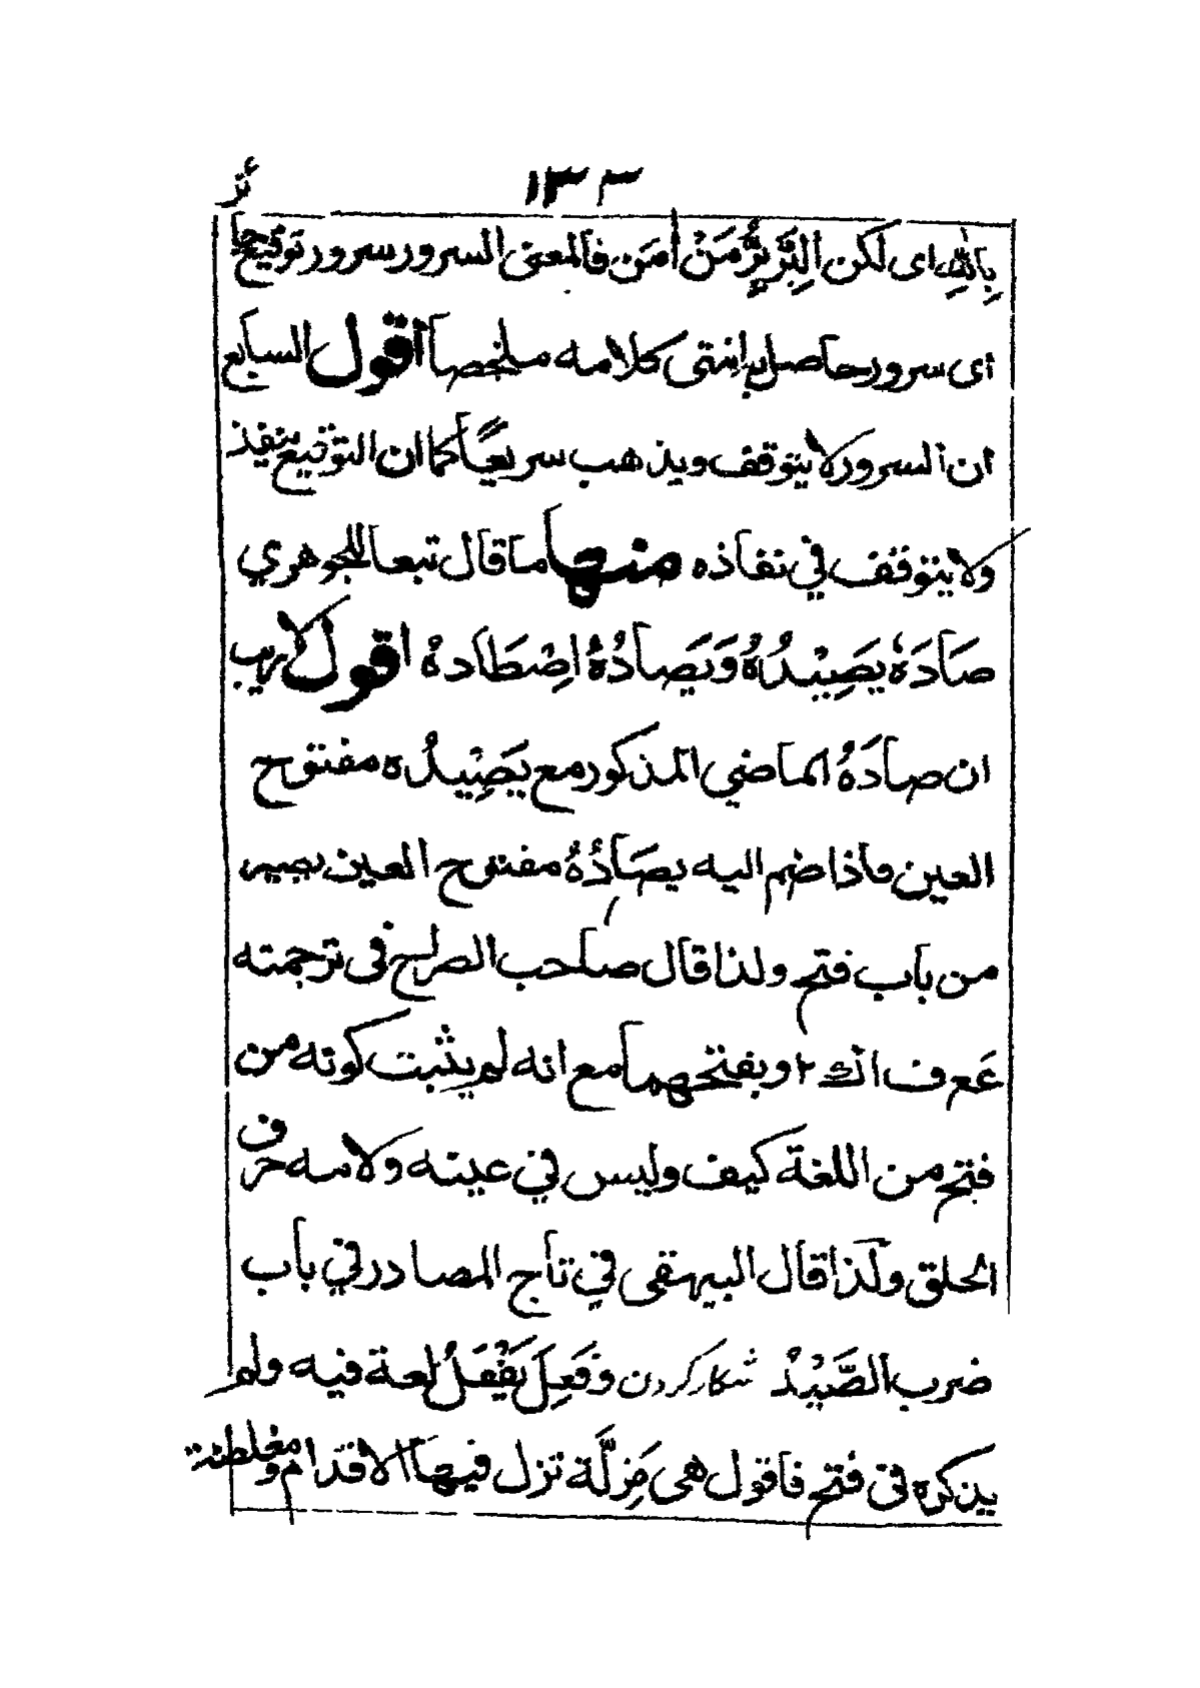 ١٣٣
بِاللّٰهِ ای لکن الْبَرَّ بِرُّ مَنْ اٰمَنَ فالمعنی السرور سرور توقیع جا
ای سرور حاصل به انتهی کلامه ملخصا اقول السابع
ان السرور لا یتوقف ویذهب سریعًا کما ان التوقیع ینفذ
ولا یتوقف في نفاذه منها ما قال تبعا للجوهري
صَادَهٗ یَصِیْدُهٗ وَیَصَادُهٗ اصْطَادهٗ اقول لاریب
ان صادَهُ الماضي المذکور مع یَصِیْدُه مفتوح
العین فاذا ضم الیه یصَادُهُ مفتوح العین یصیر
من باب فتح ولذا قال صاحب الصراح فی ترجمته
وبفتحهما مع انه لم یثبت کونه من
فتح من اللغة کیف ولیس في عینه ولامه حرف
الحلق ولذا قال البیهقی في تاج المصادر في باب
ضرب الصَّیْدُ شکار کردن وَفَعِلَ یَفْعَلُ لغة فیه ولم
یذکره فی فتح فاقول هی مَزِلَّة تزل فیها الاقدام ومغلطة